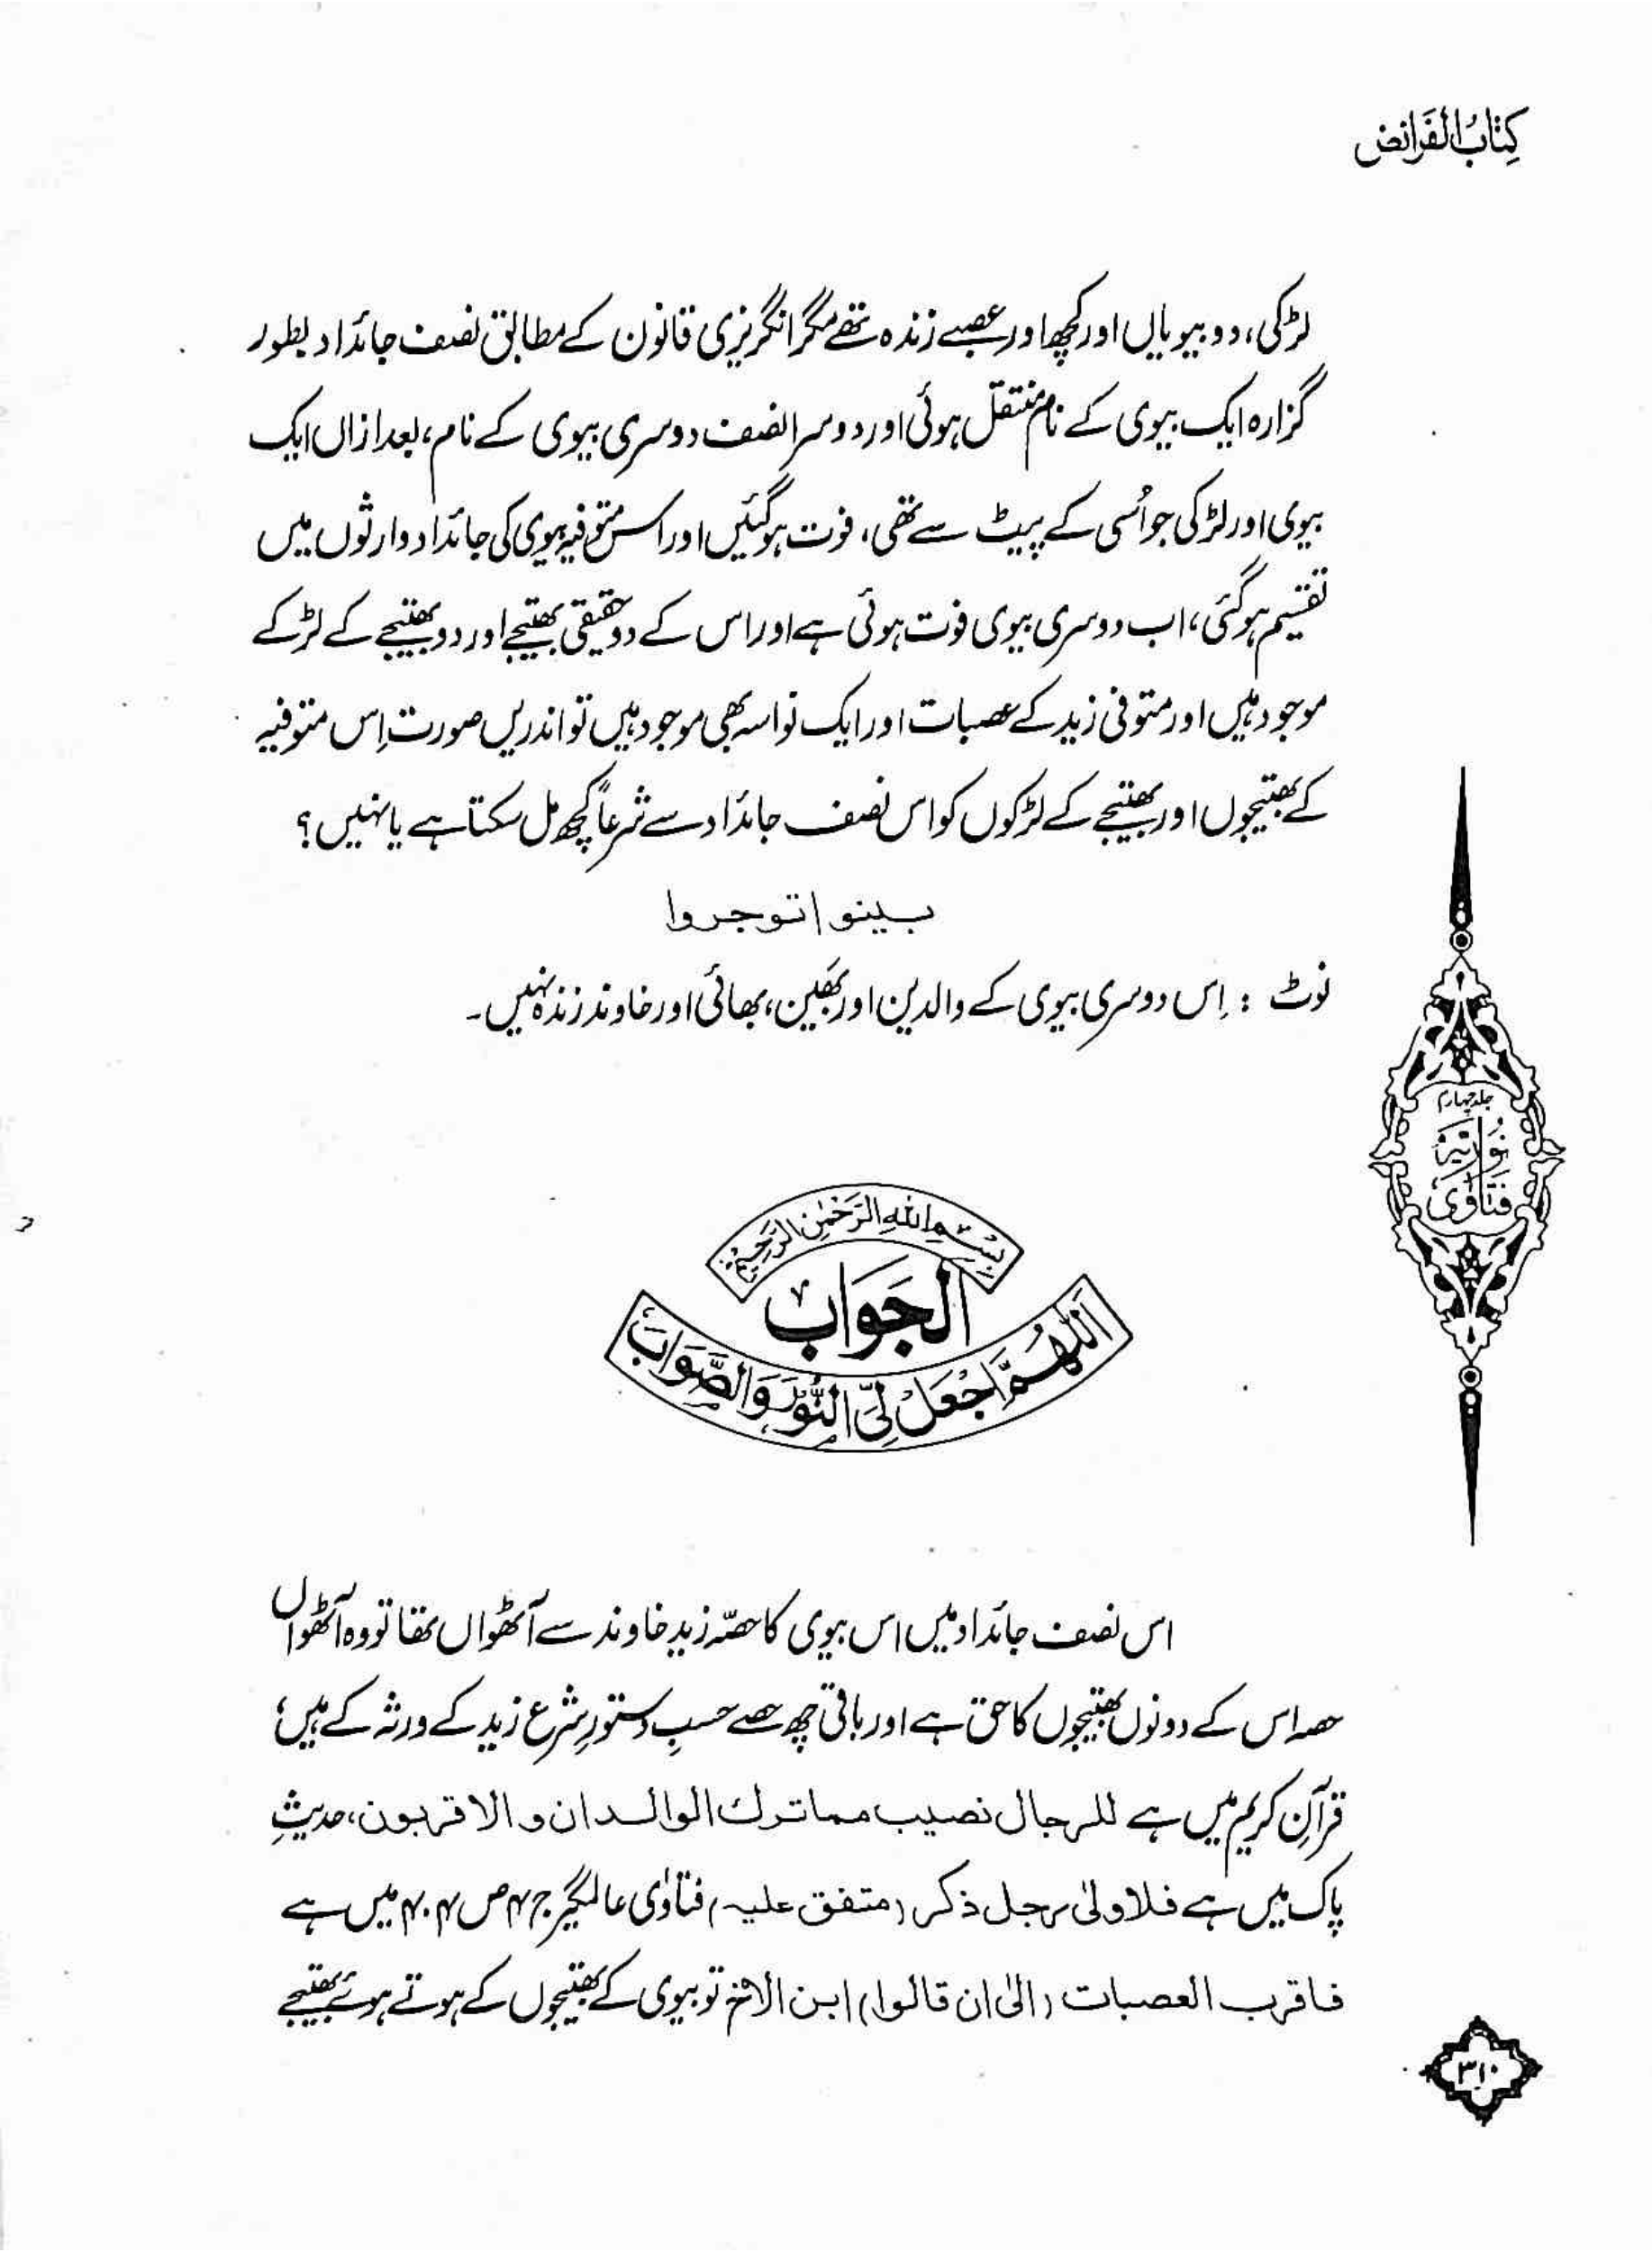 كِتَابُ الْفَرَائِض
لڑکی، دو بیویاں اور کچھ اور عصبے زندہ تھے مگر انگریزی قانون کے مطابق نصف جائداد بطور
گزارہ ایک بیوی کے نام منتقل ہوئی اور دوسرا نصف دوسری بیوی کے نام، بعد ازاں ایک
بیوی اور لڑکی جو اُسی کے پیٹ سے تھی، فوت ہوگئیں اور اس متوفیہ بیوی کی جائداد وارثوں میں
تقسیم ہوگئی، اب دوسری بیوی فوت ہوئی ہے اور اس کے دو حقیقی بھتیجے اور دو بھتیجے کے لڑکے
موجود ہیں اور متوفی زید کے عصبات اور ایک نواسہ بھی موجود ہیں تو اندریں صورت اِس متوفیہ
کے بھتیجوں اور بھتیجے کے لڑکوں کو اس نصف جائداد سے شرعاً کچھ مل سکتا ہے یا نہیں؟
بینوا توجروا
نوٹ : اِس دوسری بیوی کے والدین اور بھین، بھائی اور خاوند زندہ نہیں۔
جلد چہارم
نُوریَّہ
فتَاوٰی
بِسْمِ اللهِ الرَّحْمٰنِ الرَّحِيْمِ
اَلجَوَابُ
اَللّٰهُمَّ اجْعَلْ لِّيَ النُّوْرَ وَالصَّوَابَ
اس نصف جائداد میں اس بیوی کا حصّہ زید خاوند سے آٹھواں تھا تو وہ آٹھواں
حصہ اس کے دونوں بھتیجوں کا حق ہے اور باقی چھ حصے حسبِ دستورِ شرع زید کے ورثہ کے ہیں؛
قرآنِ کریم میں ہے للرجال نصیب مما ترك الوالدان و الاقربون، حدیثِ
پاک میں ہے فلاولیٰ رجل ذکر (متفق علیہ) فتاوٰی عالمگیر ج ۴ ص ۴۰۴ میں ہے
فاقرب العصبات (الیٰ ان قالوا) ابن الاخ تو بیوی کے بھتیجوں کے ہوتے ہوئے بھتیجے
۳۱۰